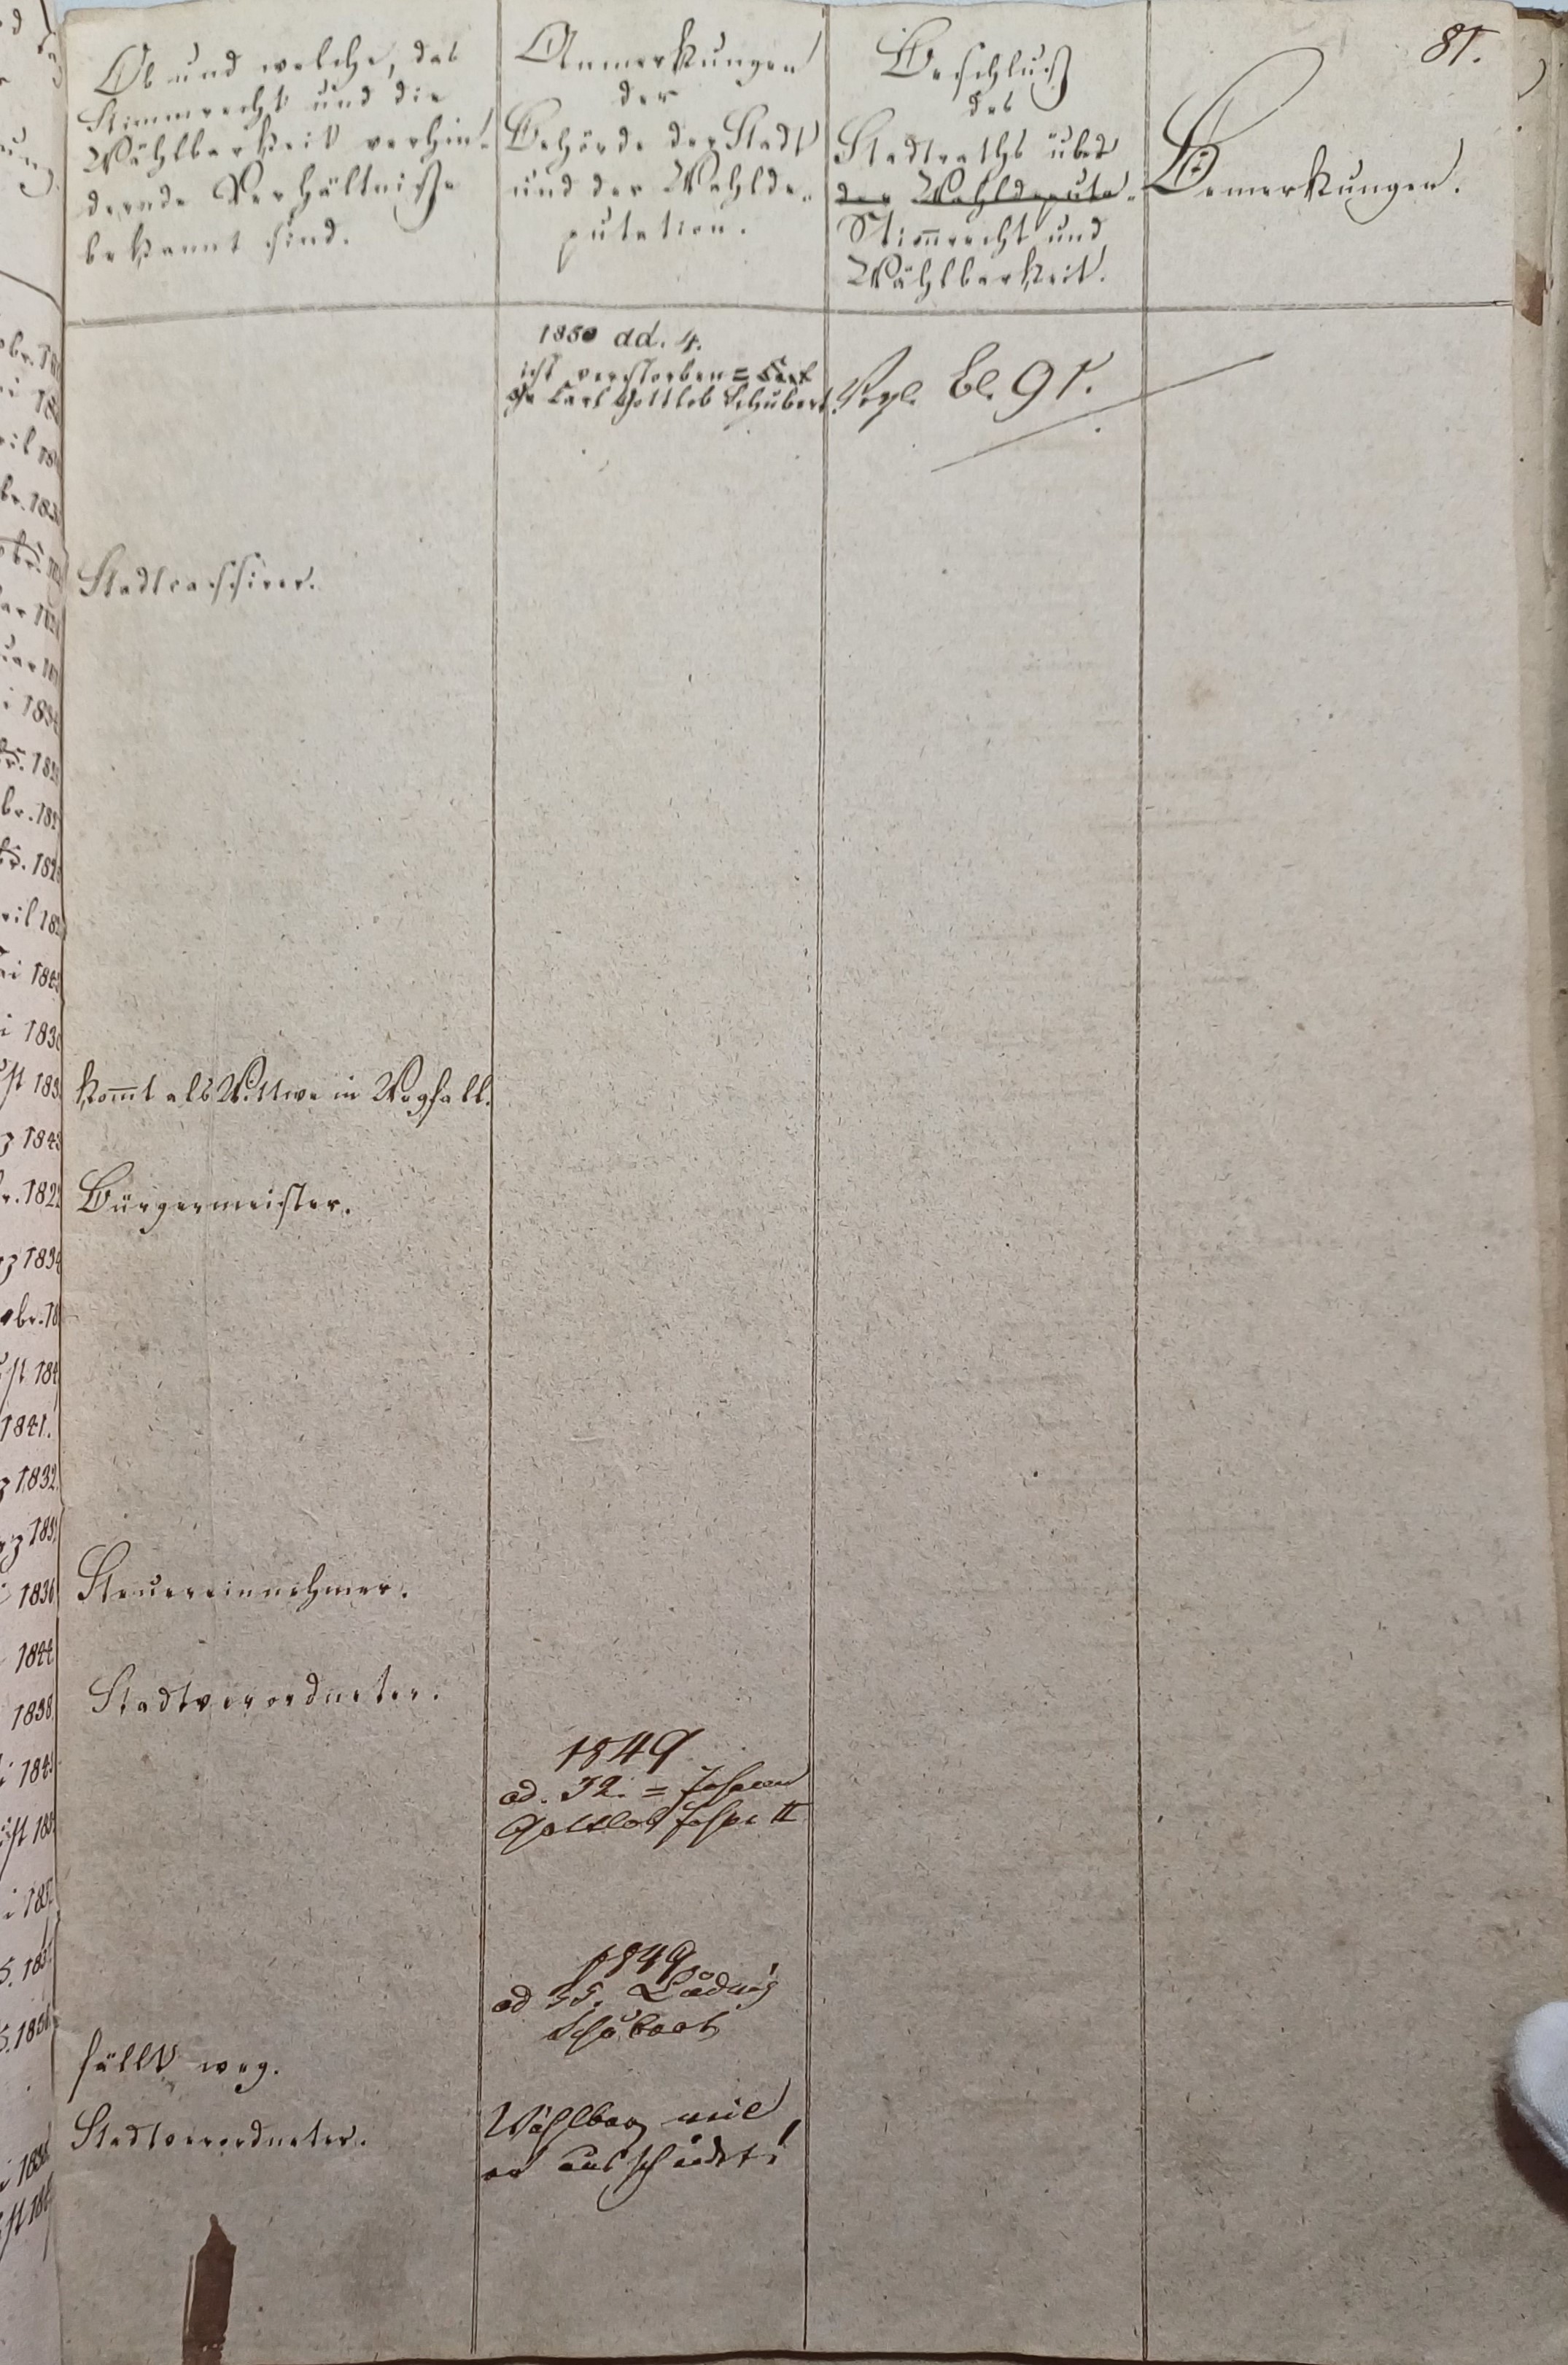 81.
Ob und welche, das
Stimmrecht und die
Wählbarkeit verhin-
dernde Verhältniße
bekannt sind.
Anmerkungen
der
Behörde der Stadt
und der Wahlde-
putation.
Beschluß
des
Stadtraths über
der Wahldeputa-
Stimmrecht und
Wählbarkeit.
Bemerkungen.
1850 ad. 4.
ist verstorben =
Carl Gottlob Schubert.
Vrgl. Bl. 91.
Stadtcassirer.
kommt als Wittwe in Wegfall.
Bürgermeister.
Steuereinnehmer.
Stadtverordneter.
1849
ad. 32. = Johann
Gottlob II
1849.
ad 55. Ludwig
Schubert
fällt weg.
Stadtverordneter.
Wählbar weil
er ausscheidet!